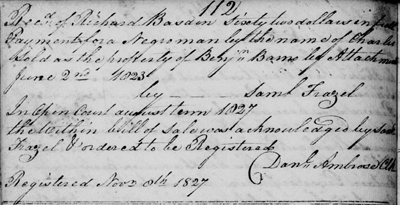 112
Recd. of Richard Basden Sixty two dollars in full
Payment for a Negro man by the name of Charles
Sold as the property of Benjn by Attachment
June 2nd 1823
by — Saml Frazel
In Open Court august term 1827
the within bill of Sale was acknowledged by Saml
Frazel & ordered to be Registered
Danl. Ambrose Clk
Registered Novr 8th 1827